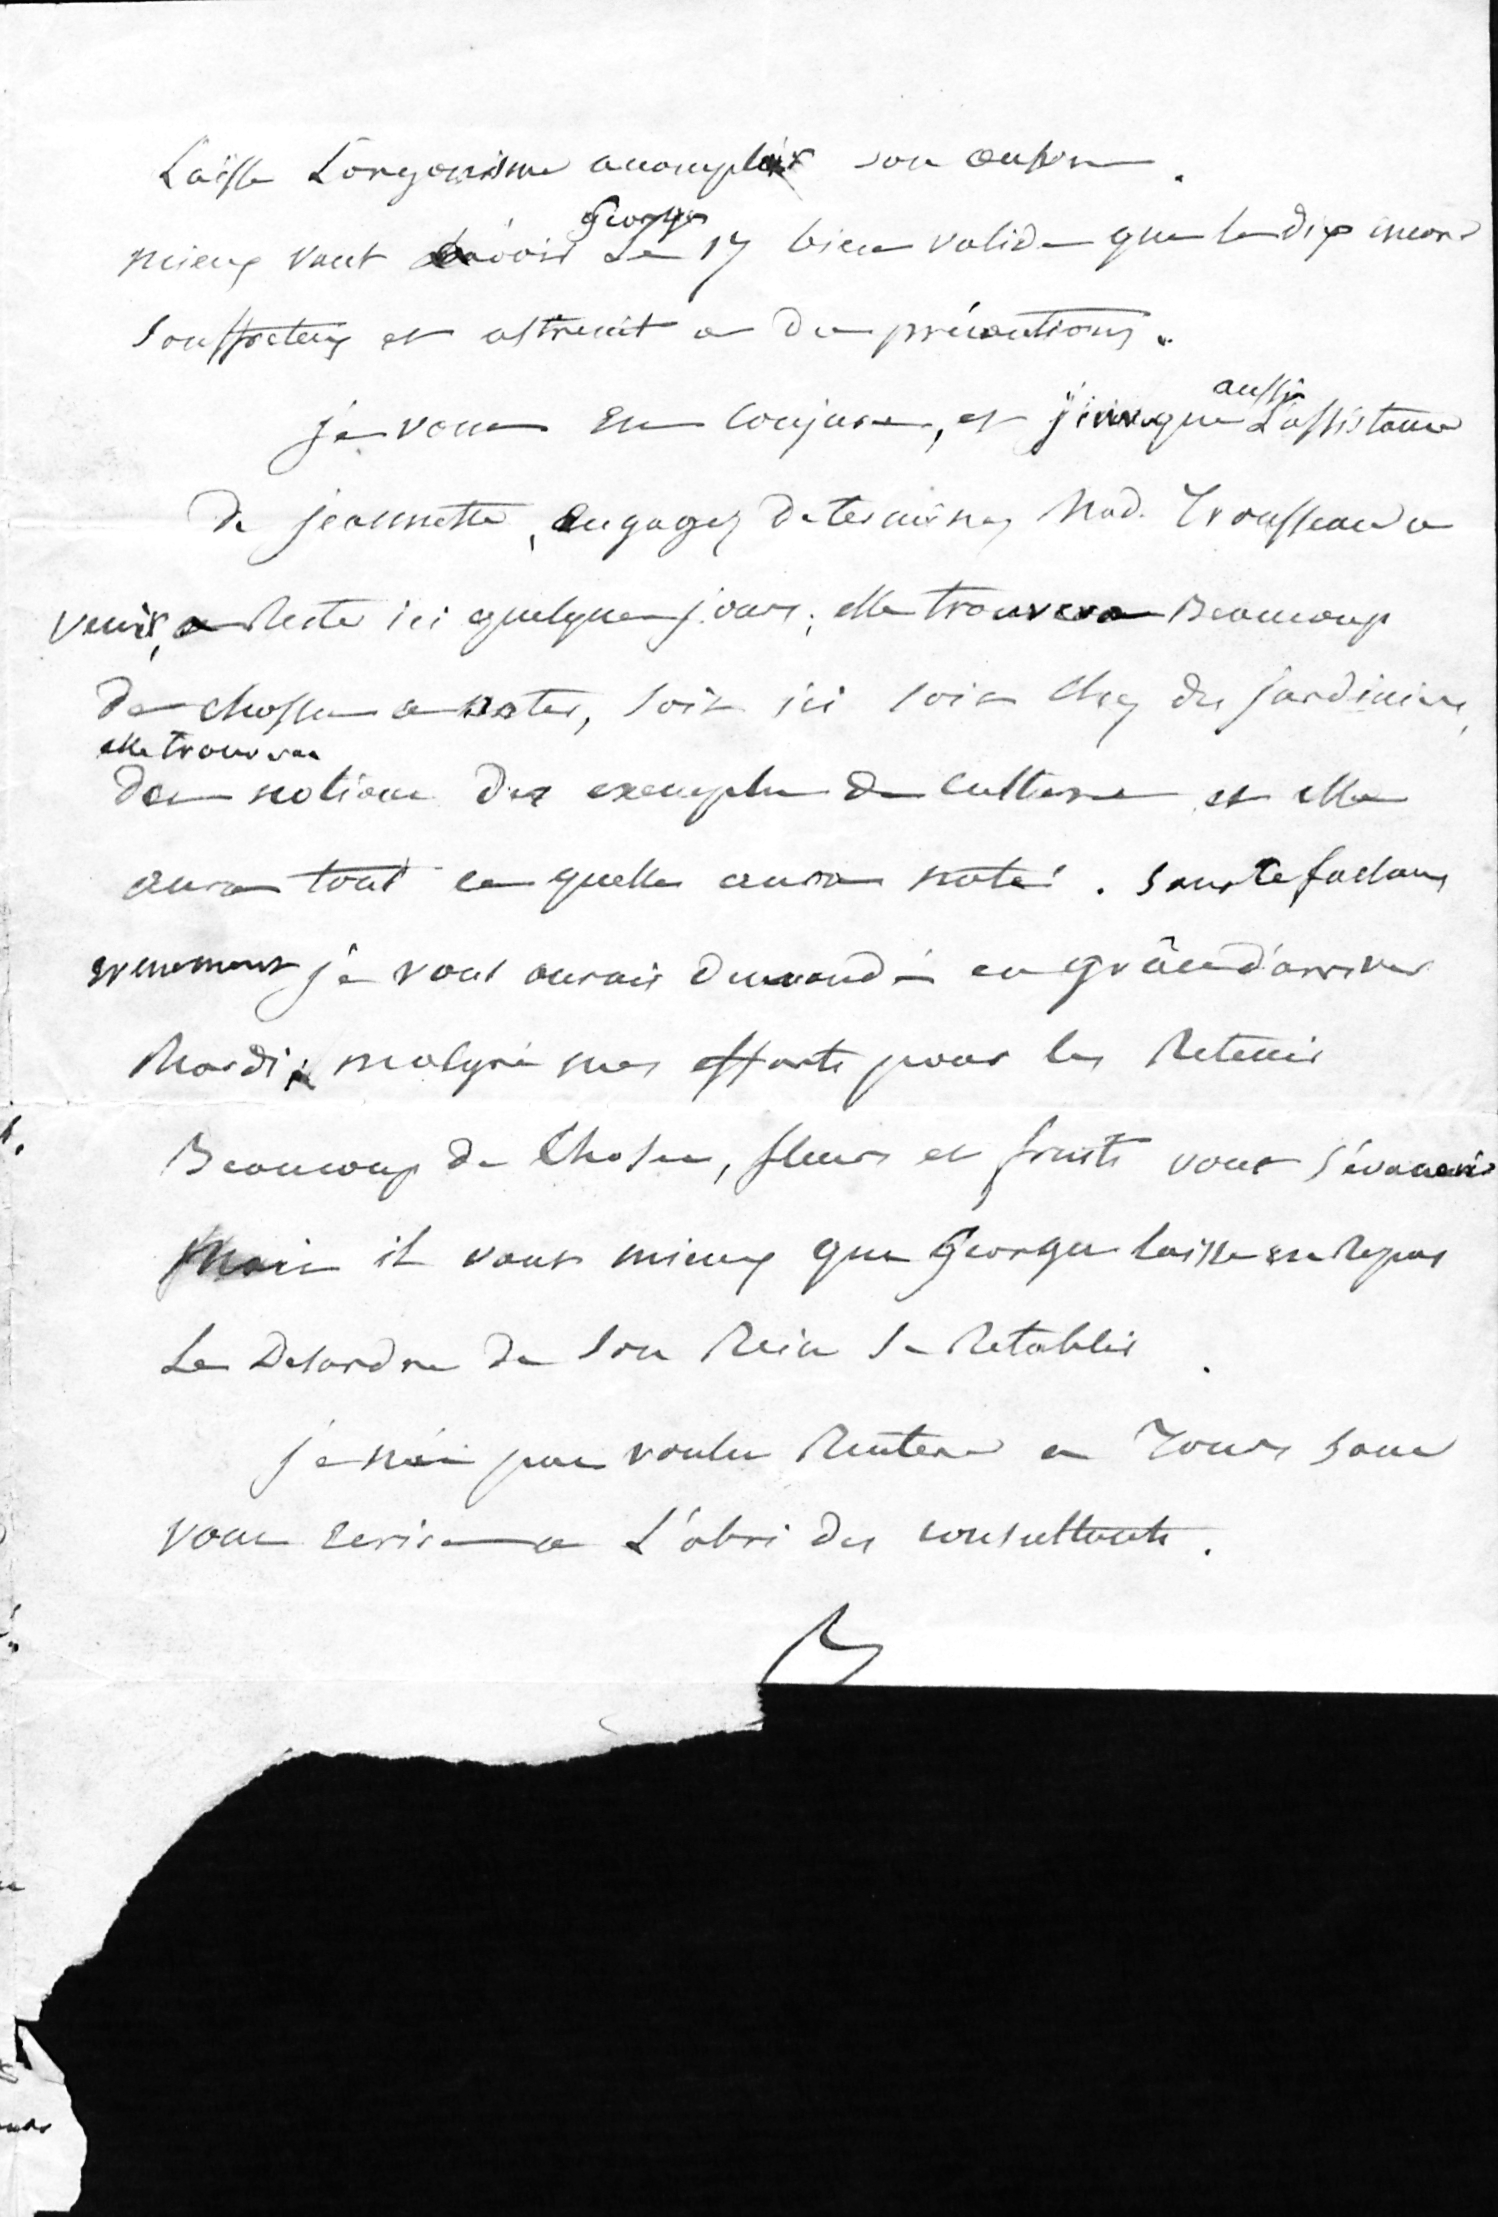 Laisse L'organisme accomplir son oeuvre.
mieux vaut avoir Georges Le 17 bien valide que le dix encore
souffreteux et astreint a des précautions.
je vous en conjure, et j'invoque aussi L'assistance
de jeannette, engagez determinez Mad. Trousseau a
venir, a Rester ici quelques jours; elle trouvera Beaucoup
de choses a noter, soit ici soit chez des jardiniers,
elle trouvera
des notions des exemples de culture et elle
aura tout ce quelle aura noté. sans ce facheux
evenement je vous aurais demandé en grâce d'arriver
Mardi; malgré mes efforts pour les Retenir
Beaucoup de Choses, fleurs et fruits vont s'évanouir
Mais il vaut mieux que Georges laisse en Repos
Le Desordre de son Rein se Retablir.
je n'ai pas voulu Rentrer a Tours sans
vous ecrire a L'abri des consultants.
B